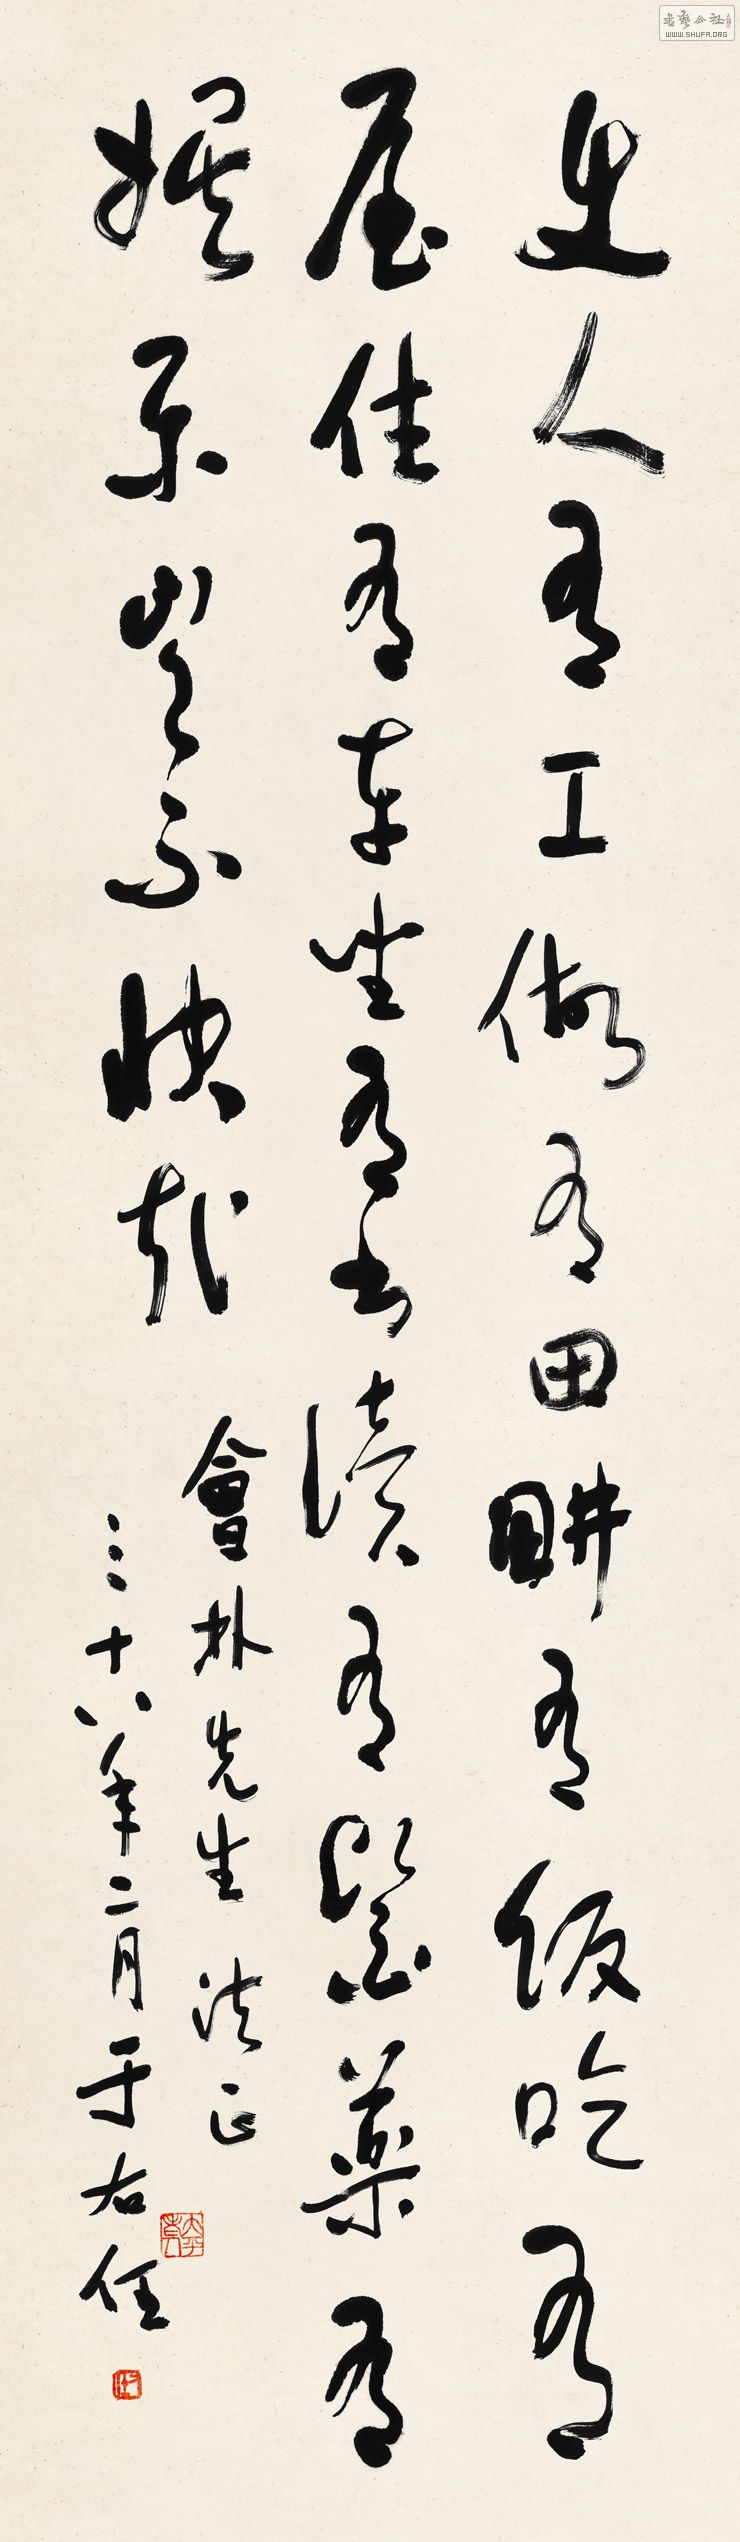 使人有工做有田畊有飯吃有
屋住有車坐有書讀有醫藥有
娛樂豈不快哉
會朴先生 法正
三十八年二月于右任
書藝公社
WWW.SHUFA.ORG